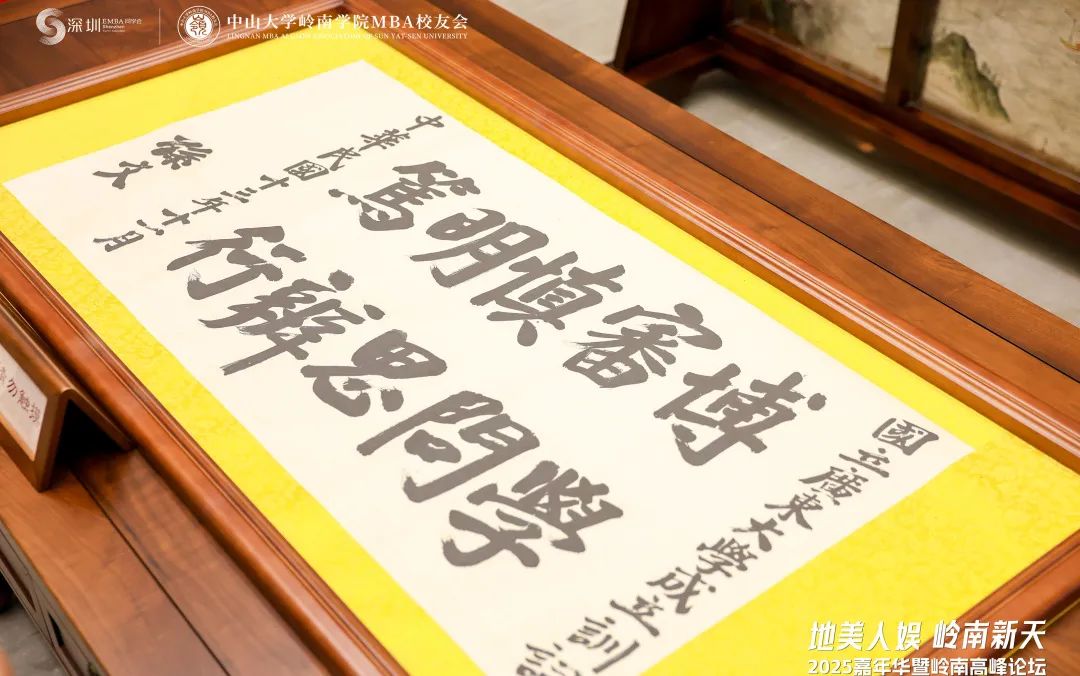 深圳 EMBA 同学会
Shenzhen
中山大学岭南学院MBA校友会
LINGNAN MBA ALUMNI ASSOCIATION OF SUN YAT-SEN UNIVERSITY
國立廣東大學成立訓詞
博學
審問
慎思
明辨
篤行
中華民國十三年十一月
孫文
勿觸摸
地美人娱 岭南新天
2025嘉年华暨岭南高峰论坛